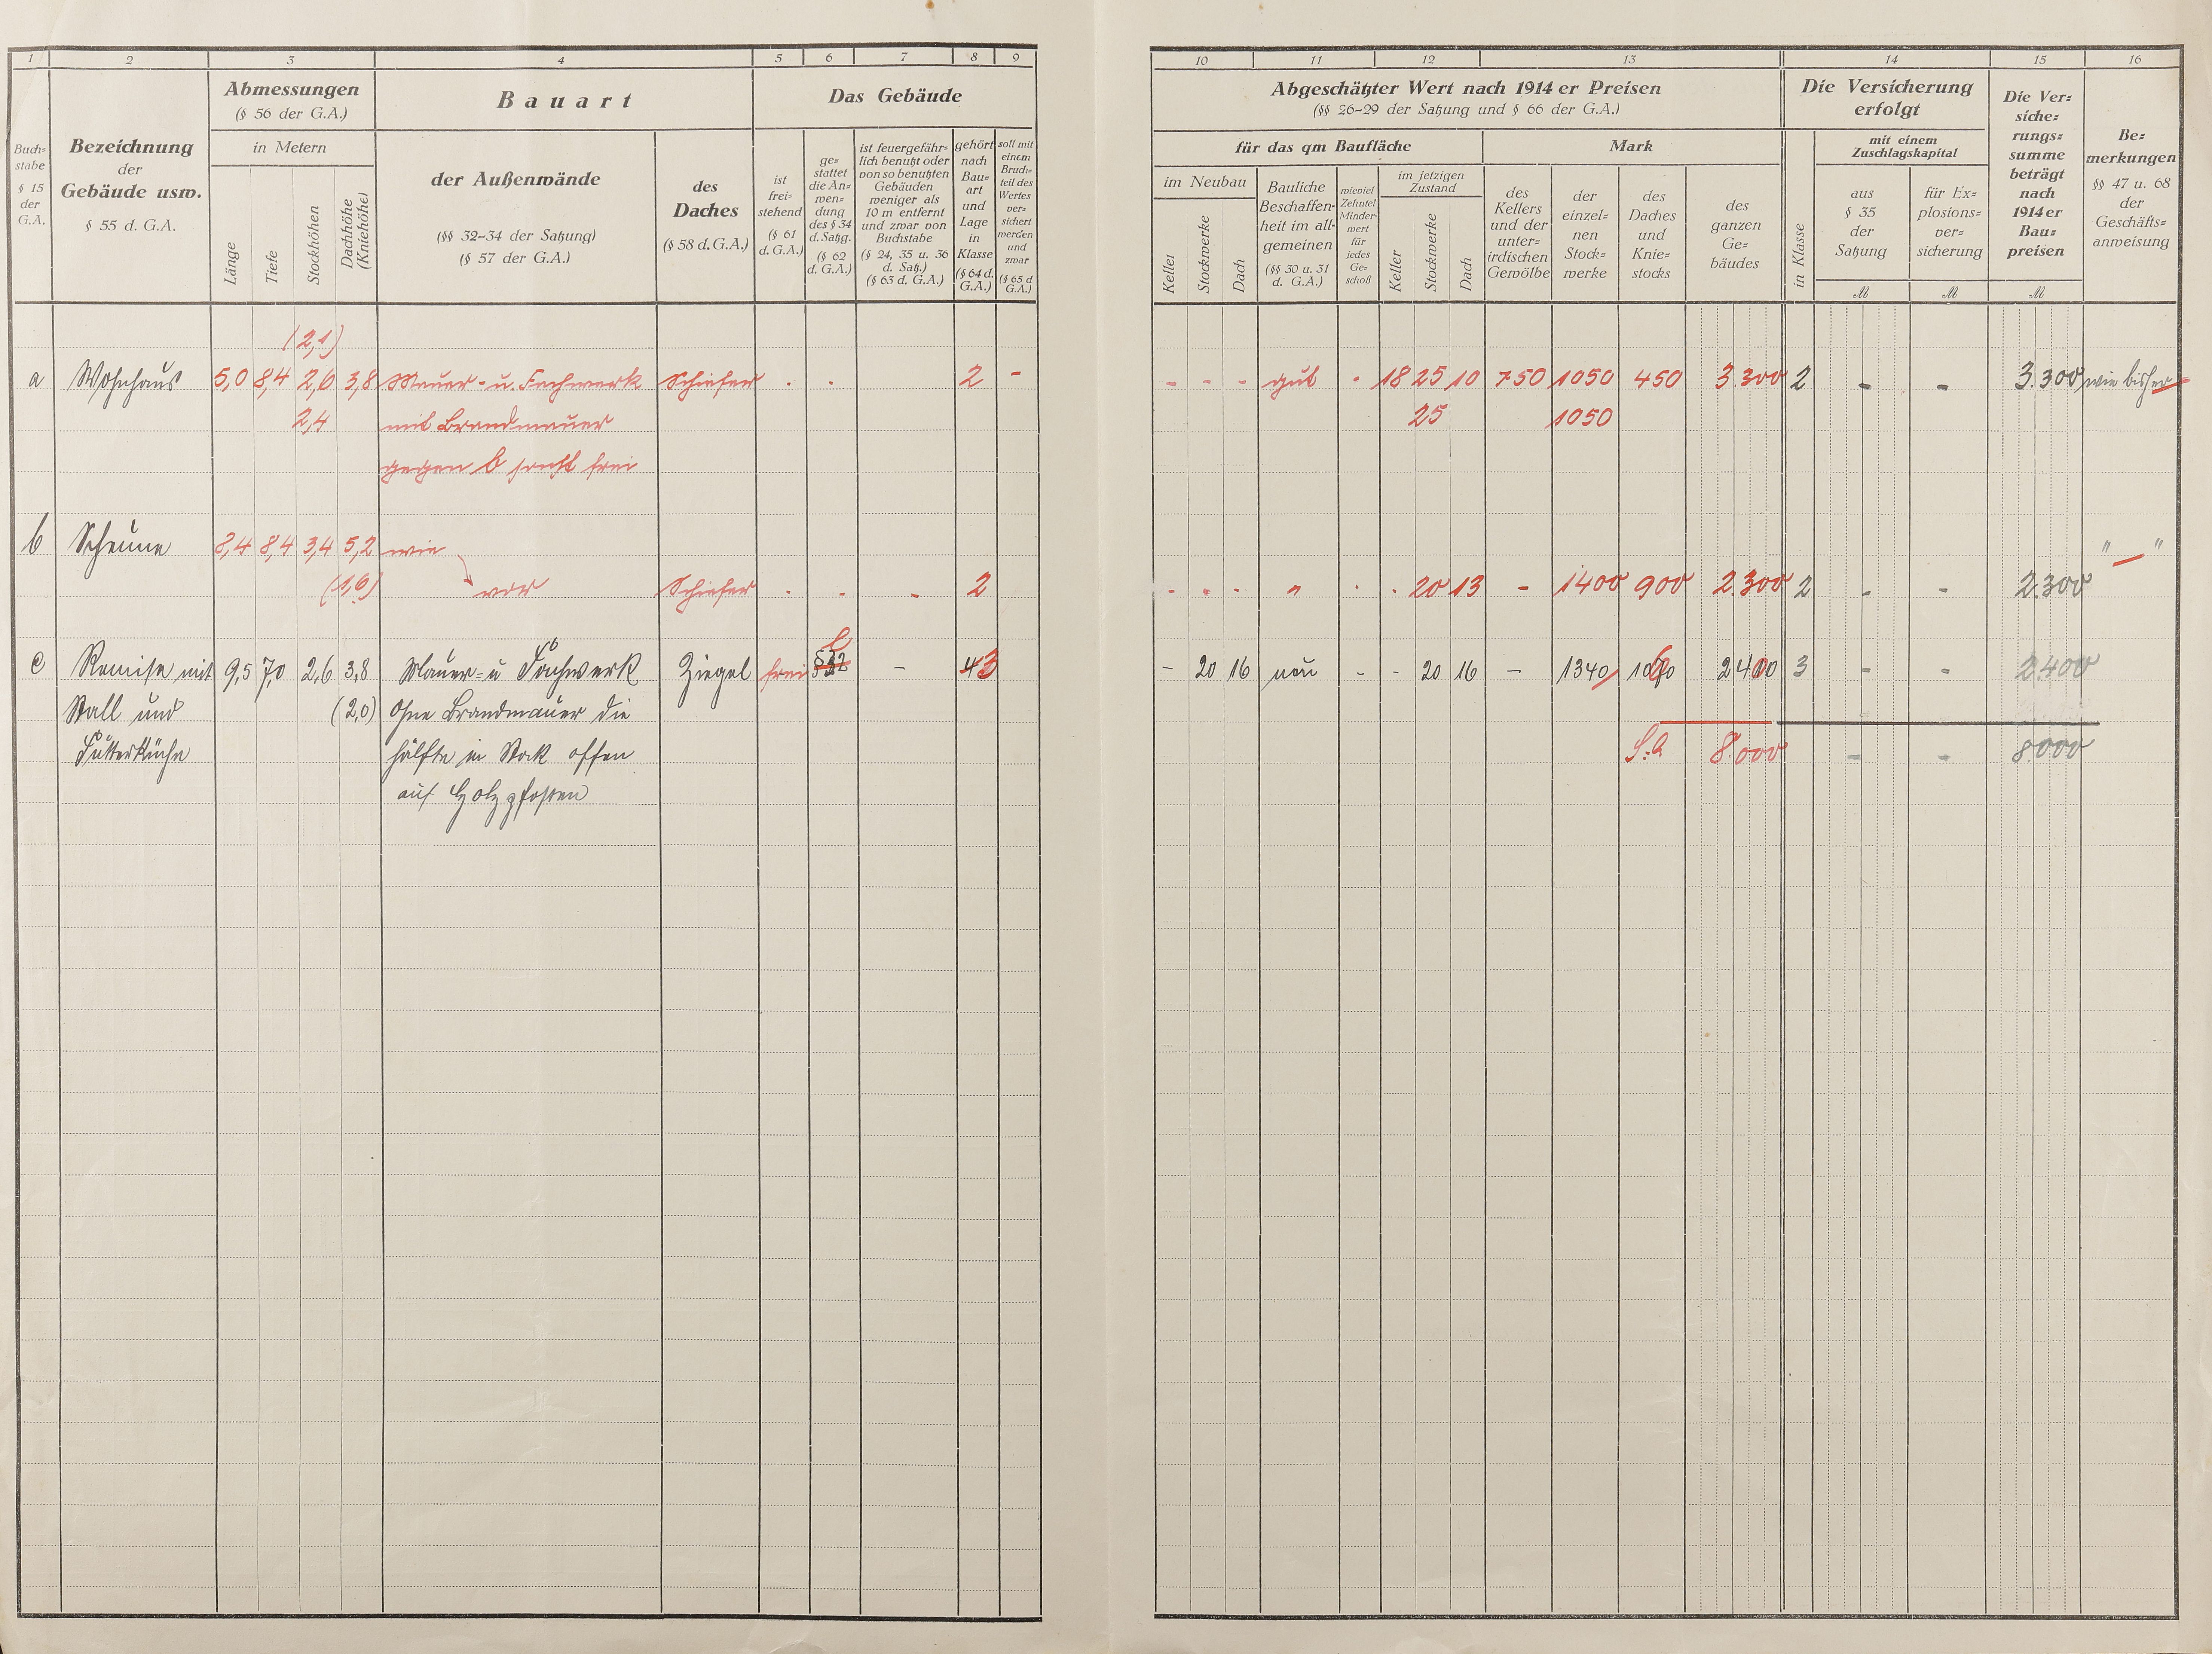 1 2 3 4 5 6 7 8 9
Buch=
stabe
§ 15
der
G.A.
Bezeichnung
der
Gebäude usw.
§ 55 d. G.A.
Abmessungen
(§ 56 der G.A.)
in Metern
Länge
Tiefe
Stockhöhen
Dachhöhe
(Kniehöhe)
Bauart
der Außenwände
(§§ 32–34 der Satzung)
(§ 57 der G.A.)
des
Daches
(§ 58 d. G.A.)
Das Gebäude
ist
frei=
stehend
(§ 61
d. G.A.)
ge=
stattet
die An=
wen=
dung
des § 34
d. Satzg.
(§ 62
d. G.A.)
ist feuergefähr=
lich benutzt oder
von so benutzten
Gebäuden
weniger als
10 m entfernt
und zwar von
Buchstabe
(§ 24, 35 u. 36
d. Satz.)
(§ 63 d. G.A.)
gehört
nach
Bau=
art
und
Lage
in
Klasse
(§ 64 d.
G.A.)
soll mit
einem
Bruch=
teil des
Wertes
ver=
sichert
werden
und
zwar
(§ 65 d
G.A.)
(2,1)
a Wohnhaus 5,0 8,4 2,6 3,8 Mauer- u. Fachwerk Schiefer . . 2 -
2,4 mit Brandmauer
gegen b sonst frei
b Scheune 8,4 8,4 3,4 5,2 wie
(1,6) vor Schiefer . - - 2
c Remise mit 9,5 7,0 2,6 3,8 Mauer= u Fachwerk Ziegel frei - 4 3
Stall und (2,0) ohne Brandmauer die
Futterküche hälfte in Stock offen
auf Holzpfosten
10 11 12 13 14 15 16
Abgeschätzter Wert nach 1914er Preisen
(§§ 26–29 der Satzung und § 66 der G.A.)
für das qm Baufläche
im Neubau
Keller
Stockwerke
Dach
Bauliche
Beschaffen=
heit im all=
gemeinen
(§§ 30 u. 31
d. G.A.)
wieviel
Zehntel
Minder=
wert
für
jedes
Ge=
schoß
im jetzigen
Zustand
Keller
Stockwerke
Dach
Mark
des
Kellers
und der
unter=
irdischen
Gewölbe
der
einzel=
nen
Stock=
werke
des
Daches
und
Knie=
stocks
des
ganzen
Ge=
bäudes
Die Versicherung
erfolgt
in Klasse
mit einem
Zuschlagskapital
aus
§ 35
der
Satzung
für Ex=
plosions=
ver=
sicherung
M M M
Die Ver=
siche=
rungs=
summe
beträgt
nach
1914er
Bau=
preisen
Be=
merkungen
§§ 47 u. 68
der
Geschäfts=
anweisung
- - - gut - 18 25 10 750 1050 450 3.300 2 - - 3.300 wie bisher
25 1050
" — "
- - - " . . 20 13 - 1400 900 2.300 2 - - 2.300
- 20 16 neu - - 20 16 - 1340 1060 2400 3 - - 2.400
S.a 8.000 - - 8000